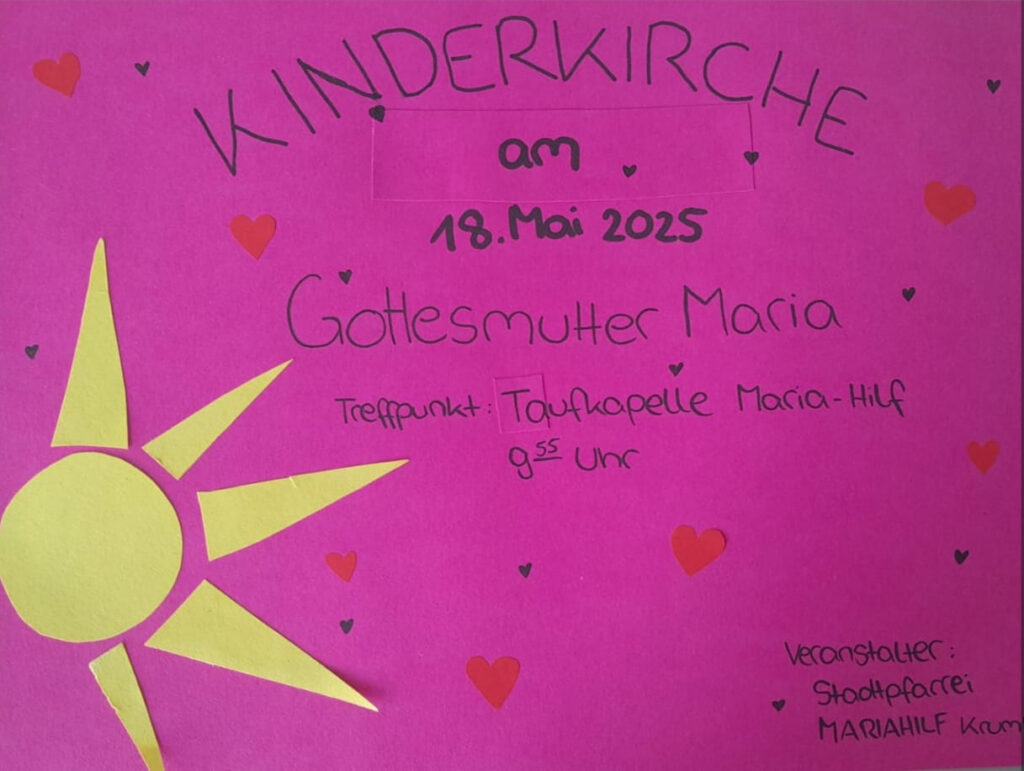 KINDERKIRCHE
am
18. Mai 2025
Gottesmutter Maria
Treffpunkt: Taufkapelle Maria-Hilf
9 55 Uhr
Veranstalter:
Stadtpfarrei
MARIAHILF